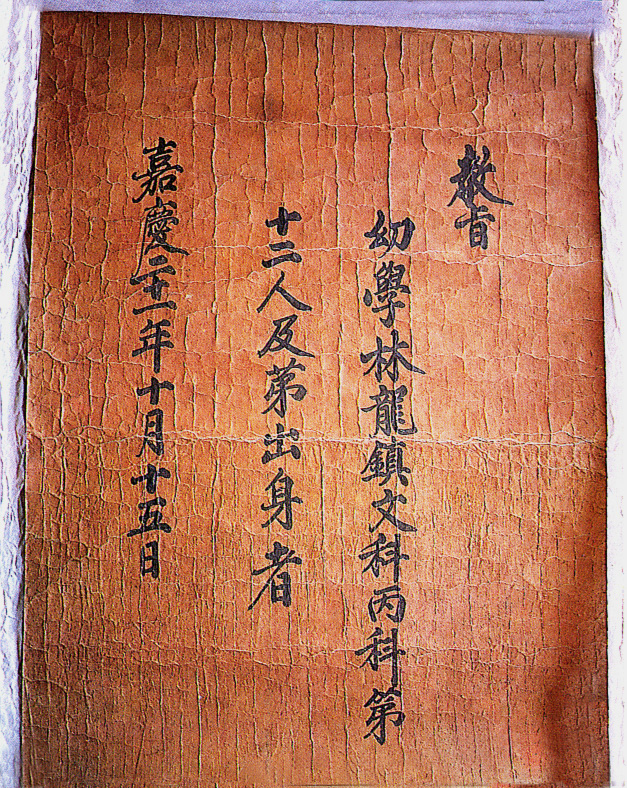 敎旨
幼學林龍鎭文科丙科第
十二人及第出身者
嘉慶二十一年十月十五日